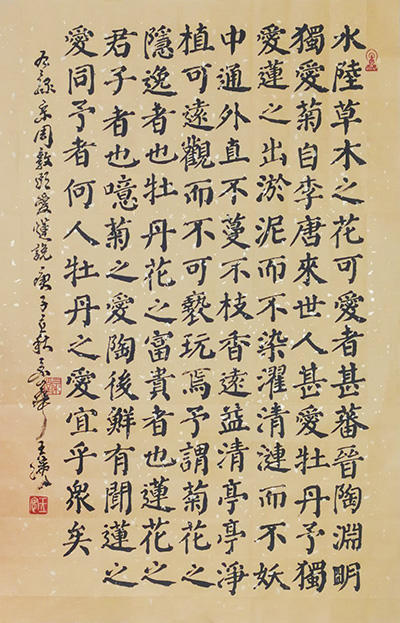 水陸草木之花可愛者甚蕃晉陶淵明
獨愛菊自李唐來世人甚愛牡丹予獨
愛蓮之出淤泥而不染濯清漣而不妖
中通外直不蔓不枝香遠益清亭亭淨
植可遠觀而不可褻玩焉予謂菊花之
隱逸者也牡丹花之富貴者也蓮花之
君子者也噫菊之愛陶後鮮有聞蓮之
愛同予者何人牡丹之愛宜乎衆矣
右錄宋周敦頤愛蓮說庚子秋王